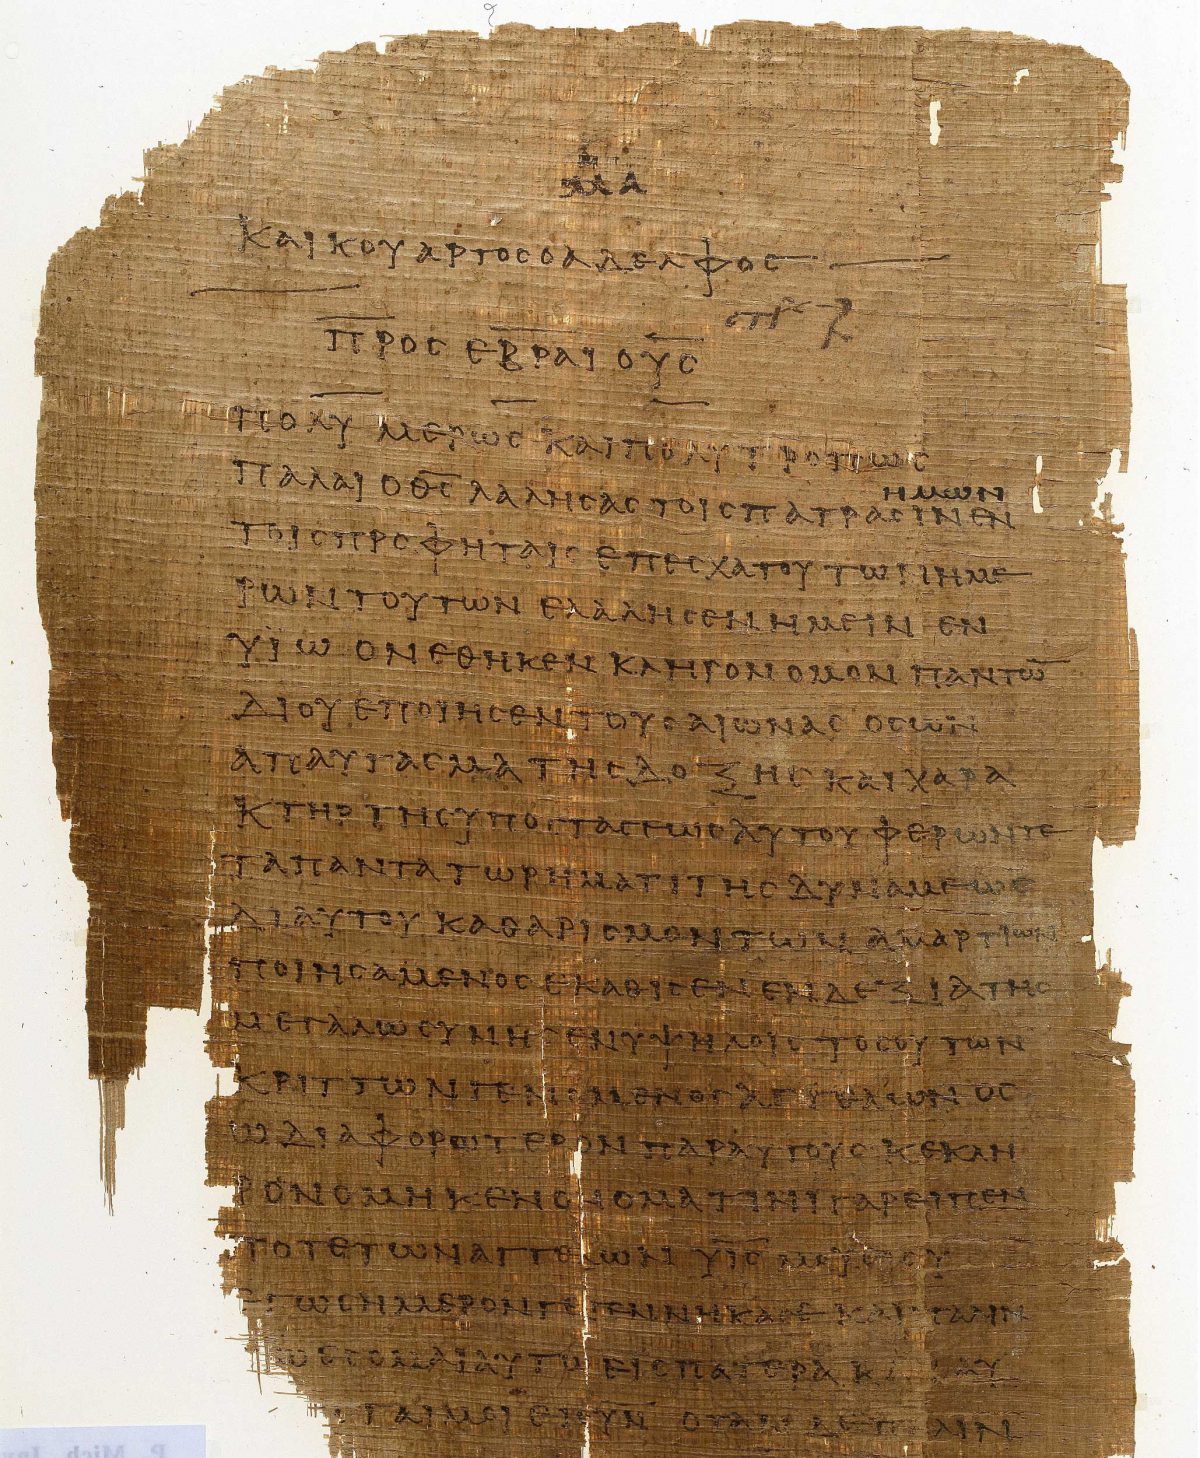 ΜΑ
ΚΑΙΚΟΥΑΡΤΟΣΟΑΔΕΛΦΟΣ
ΠΡΟΣ ΕΒΡΑΙΟΥΣ
ΠΟΛΥΜΕΡΩΣ ΚΑΙΠΟΛΥΤΡΟΠΩΣ
ΠΑΛΑΙ Ο Θ̅Σ̅ ΛΑΛΗΣΑΣ ΤΟΙΣΠΑΤΡΑΣΙΝ ΗΜΩΝ ΕΝ
ΤΟΙΣΠΡΟΦΗΤΑΙΣ ΕΠΕΣΧΑΤΟΥ ΤΩΝΗΜΕ
ΡΩΝΤΟΥΤΩΝ ΕΛΑΛΗΣΕΝΗΜΕΙΝ ΕΝ
ΥΪΩ ΟΝΕΘΗΚΕΝ ΚΛΗΡΟΝΟΜΟΝ ΠΑΝΤΩ̅
ΔΙΟΥΕΠΟΙΗΣΕΝΤΟΥΣΑΙΩΝΑΣ ΟΣΩΝ
ΑΠΑΥΓΑΣΜΑΤΗΣΔΟΞΗΣ ΚΑΙΧΑΡΑ
ΚΤΗΡΤΗΣΥΠΟΣΤΑΣΕΩΣΑΥΤΟΥ ΦΕΡΩΝΤΕ
ΤΑΠΑΝΤΑΤΩΡΗΜΑΤΙΤΗΣΔΥΝΑΜΕΩΣ
ΔΙΑΥΤΟΥ ΚΑΘΑΡΙΣΜΟΝΤΩΝ ΑΜΑΡΤΙΩΝ
ΠΟΙΗΣΑΜΕΝΟΣΕΚΑΘΙΣΕΝ ΕΝΔΕΞΙΑΤΗΣ
ΜΕΓΑΛΩΣΥΝΗΣΕΝΥΨΗΛΟΙΣ ΤΟΣΟΥΤΩΝ
ΚΡΙΤΤΩΝΓΕΝΟΜΕΝΟΣΑΓΓΕΛΩΝ ΟΣ
Ω ΔΙΑΦΟΡΩΤΕΡΟΝ ΠΑΡΑΥΤΟΥΣ ΚΕΚΛΗ
ΡΟΝΟΜΗΚΕΝΟΝΟΜΑ ΤΙΝΙΓΑΡΕΙΠΕΝ
ΠΟΤΕΤΩΝΑΓΓΕΛΩΝ Υ̅Ι̅Σ̅ ΜΟΥ ΕΙ ΣΥ
ΕΓΩΣΗΜΕΡΟΝΓΕΓΕΝΝΗΚΑΣΕ ΚΑΙΠΑΛΙΝ
ΕΓΩΕΣΟΜΑΙΑΥΤΩ ΕΙΣΠΑΤΕΡΑ Κ ΑΥ
ΤΑΙΜΟΙ ΕΙΣΥ̅Ν̅ ΟΤΑΝ ΔΕΠΑΛΙΝ